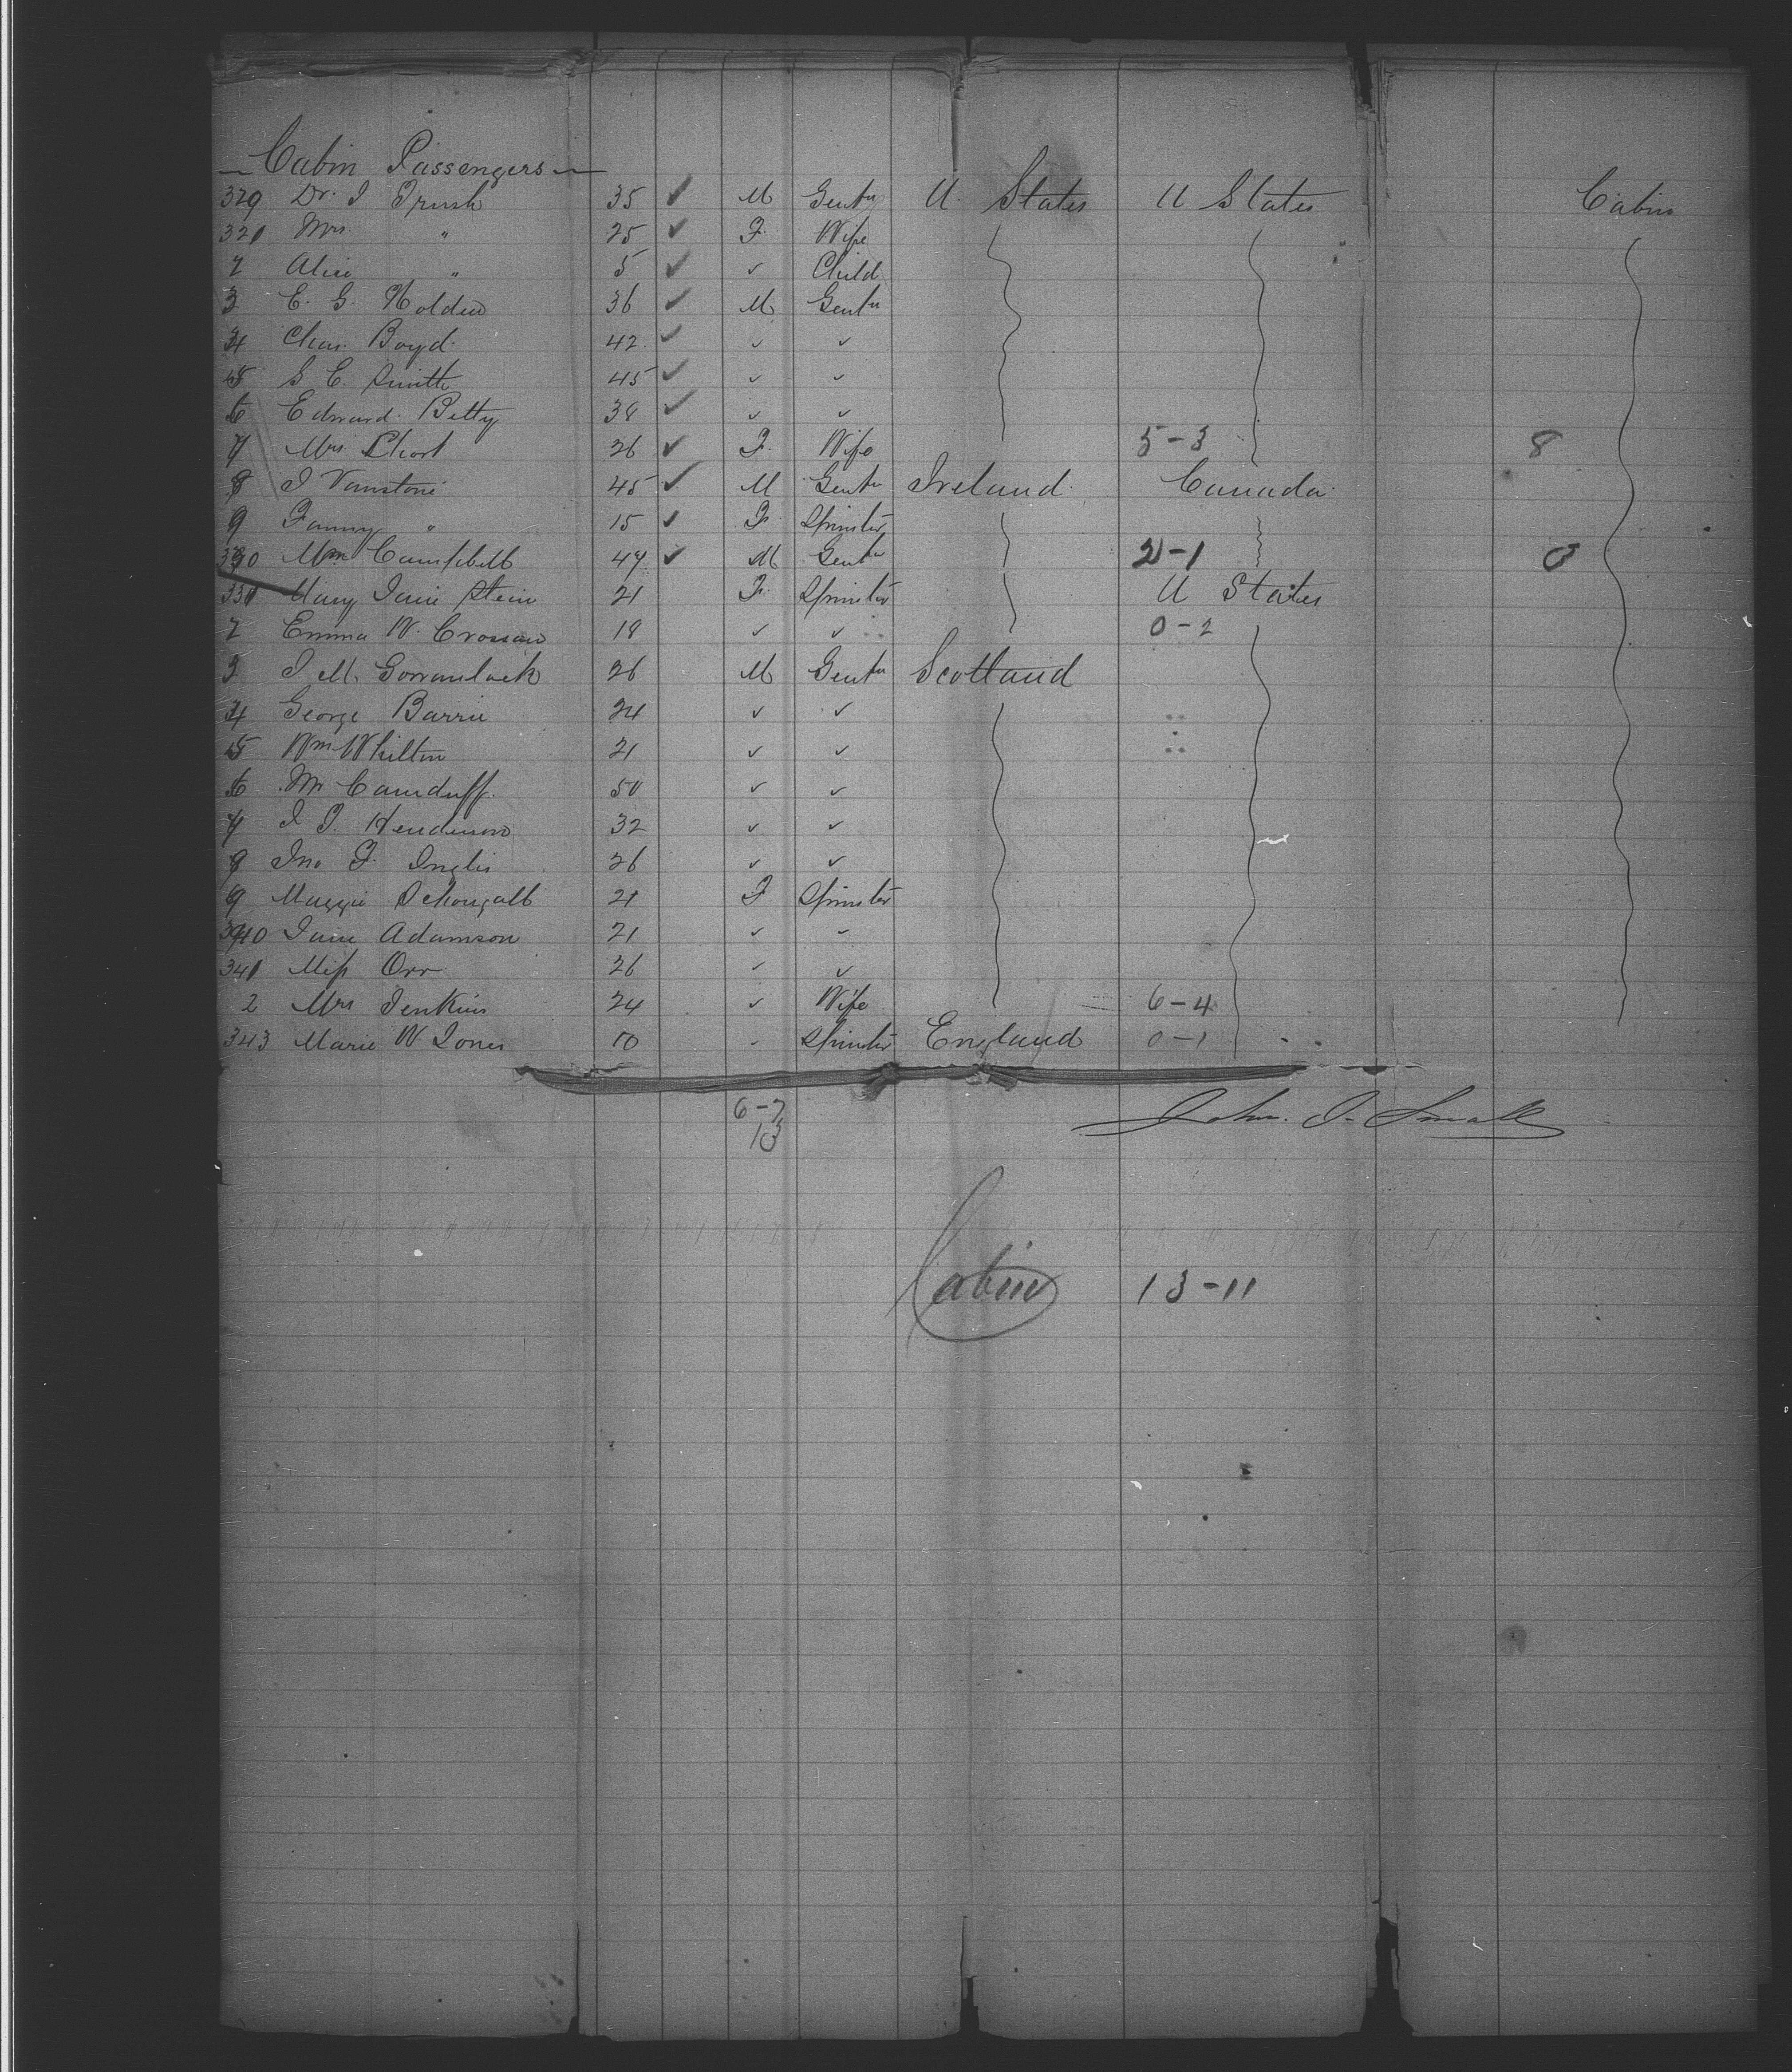 Cabin Passengers
329 Dr. I 35 ✓ M Gentn U. States U States Cabin
321 Mrs. " 25 ✓ F. Wife
2 Alice " 5 ✓ ✓ Child
3 C. G. Holden 36 ✓ M Gentn
4 Chas. Boyd. 42 ✓ ✓ ✓
5 S C. Smith 45 ✓ ✓ ✓
6 Edward. Betty 38 ✓ ✓ ✓
7 Mrs 26 ✓ F. Wife 5-3 8
8 I Vanstone 45 ✓ M Gentn Ireland Canada
9 Fanny " 15 ✓ F. Spinster
330 Wm Campbell 47 ✓ M Gentn 2-1
331 Mary Jane Stein 21 F. Spinster U States
2 Emma W. 18 ✓ ✓ 0-2
3 J M. 26 M Gentn Scotland
4 George Barrie 24 ✓ ✓
5 Wm Whilton 21 ✓ ✓
6 Mr 50 ✓ ✓
7 J. J. Henderson 32 ✓ ✓
8 Jno F. Inglis 26 ✓ ✓
9 Maggie 21 F Spinster
340 Jane Adamson 21 ✓ ✓
341 Miss Orr 26 ✓ ✓
2 Mrs Jenkins 24 ✓ Wife 6-4
343 Marie W Jones 50 Spinster England 0-1
6-7
13
John. I. Small
Cabin 13-11